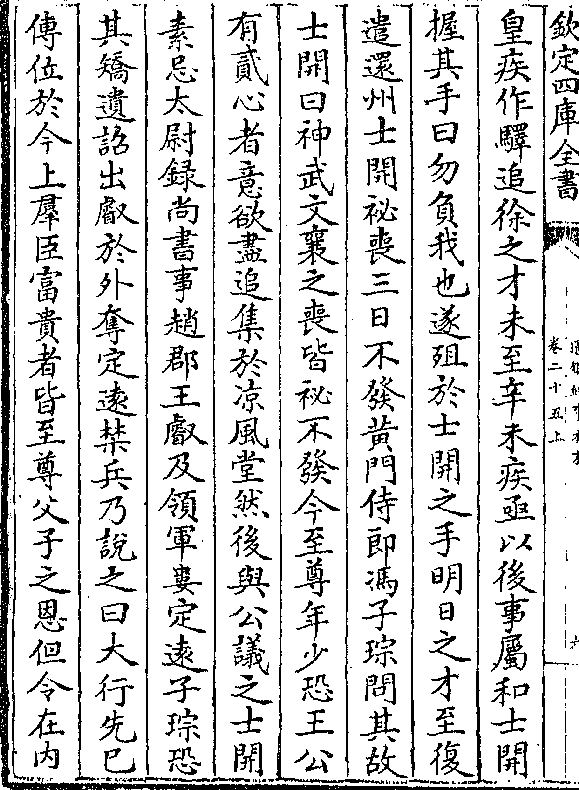 欽定四庫全書
卷二十五上
皇疾作驛追徐之才未至辛未疾亟以後事屬和士開
握其手曰勿負我也遂殂於士開之手明日之才至復
遣還州士開祕喪三日不發黃門侍郎馮子琮問其故
士開曰神武文襄之喪皆祕不發今至尊年少恐王公
有貳心者意欲盡追集於凉風堂然後與公議之士開
素忌太尉録尚書事趙郡王叡及領軍婁定逺子琮恐
其矯遺詔出叡於外奪定逺禁兵乃說之曰大行先已
傳位於今上羣臣富貴者皆至尊父子之恩但令在内